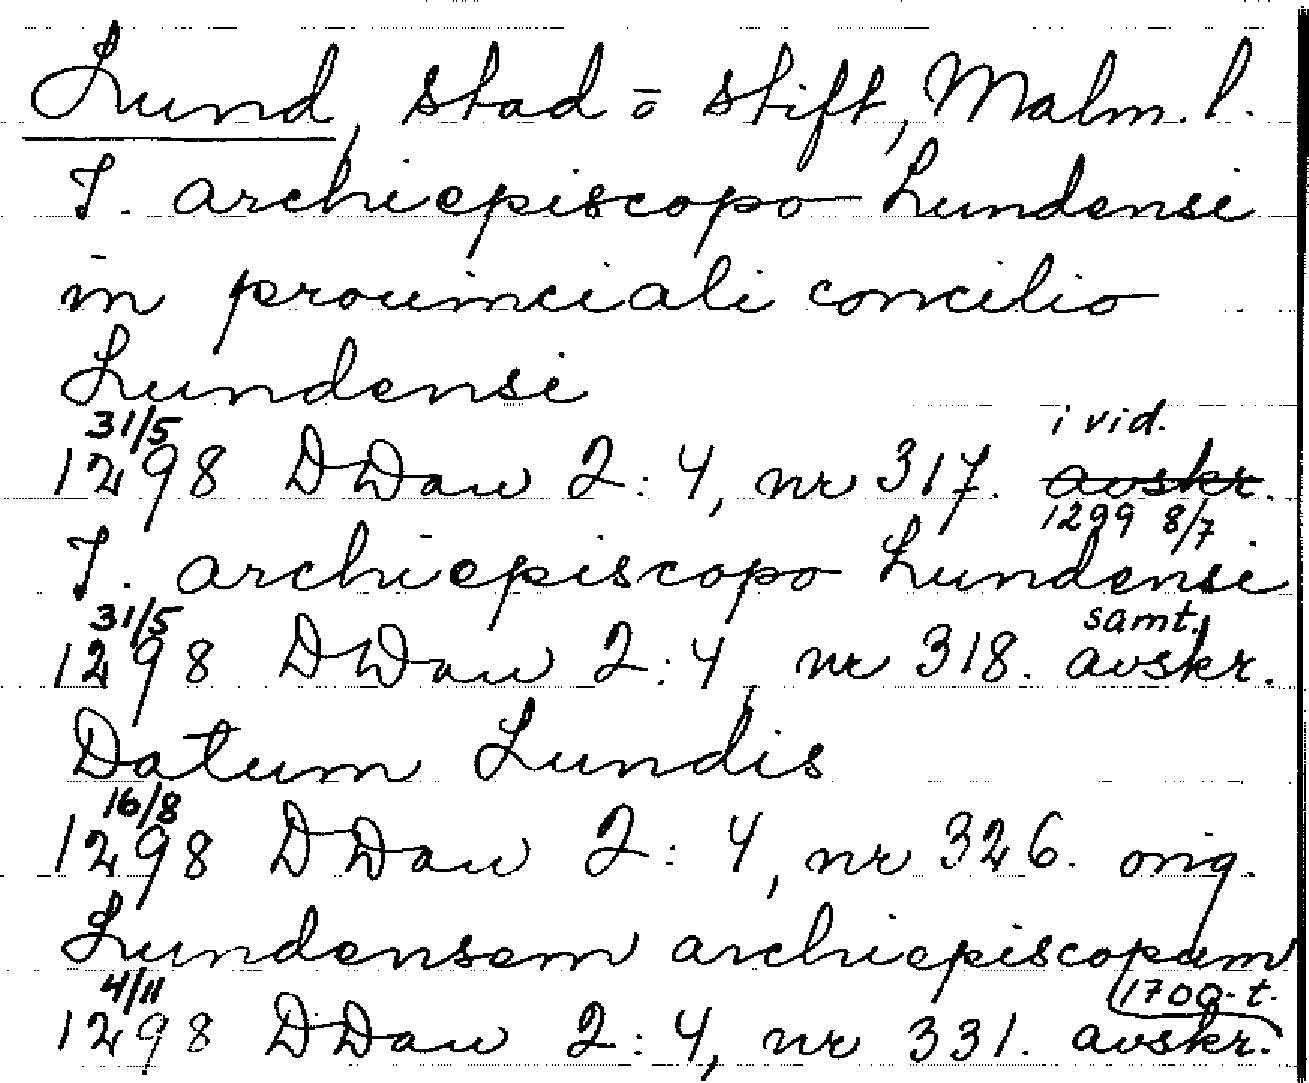 Lund, stad o stift, Malm. l.
J. archiepiscopo Lundensi
in prouinciali concilio
Lundensi
31/5 i vid.
1298 DDan 2:4, nr 317. avskr.
1299 8/7.
J. archiepiscopo Lundensi
31/5 samt.
1298 DDan 2:4, nr 318. avskr.
Datum Lundis
16/8
1298 DDan 2:4, nr 326. orig.
Lundensem archiepiscopum
4/11 1700-t.
1298 DDan 2:4, nr 331. avskr.